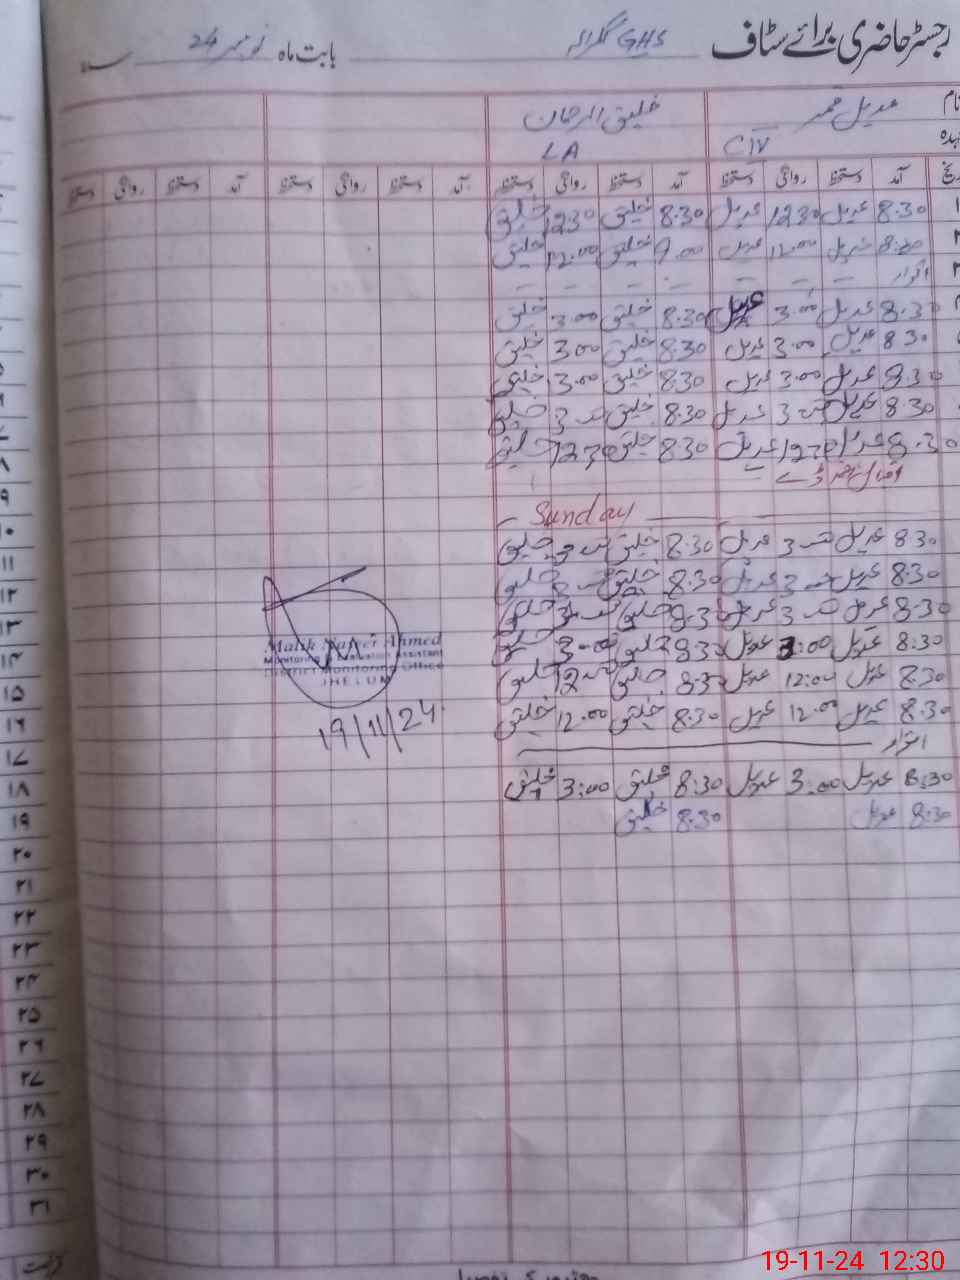 رجسٹر حاضری برائے سٹاف GHS بابت ماہ نومبر 24
نام عدیل قمر خلیق الرحمان
CIV LA
آمد دستخط روانگی دستخط آمد دستخط روانگی دستخط آمد دستخط روانگی دستخط آمد دستخط روانگی دستخط
8.30 عدیل 12.30 عدیل 8.30 خلیق 12.30 خلیق
8.30 عدیل 12.00 عدیل 9.00 خلیق 12.00 خلیق
اتوار – – – – – – –
8.30 عدیل 3.00 عدیل 8.30 خلیق 3.00 خلیق
8.30 عدیل 3.00 عدیل 8.30 خلیق 3.00 خلیق
8.30 عدیل 3.00 عدیل 8.30 خلیق 3.00 خلیق
8.30 عدیل 3.00 عدیل 8.30 خلیق 3.00 خلیق
8.30 عدیل 12.30 عدیل 8.30 خلیق 12.30 خلیق
اقبال ڈے
Sunday
8.30 عدیل 3.00 عدیل 8.30 خلیق 3.00 خلیق
8.30 عدیل 3.00 عدیل 8.30 خلیق 3.00 خلیق
8.30 عدیل 3.00 عدیل 8.30 خلیق 3.00 خلیق
8.30 عدیل 3:00 عدیل 8.30 خلیق 3.00 خلیق
8.30 عدیل 12:00 عدیل 8.30 خلیق 12.00 خلیق
8.30 عدیل 12.00 عدیل 8.30 خلیق 12.00 خلیق
اتوار
8:30 عدیل 3:00 عدیل 8:30 خلیق 3:00 خلیق
8.30 عدیل 8.30 خلیق
Malik Ahmed
Monitoring & Evaluation Assistant
District Monitoring Office
JHELUM
19/11/24
۸
۹
۱۰
۱۱
۱۲
۱۳
۱۴
۱۵
۱۶
۱۷
۱۸
۱۹
۲۰
۲۱
۲۲
۲۳
۲۴
۲۵
۲۶
۲۷
۲۸
۲۹
۳۰
۳۱
19-11-24 12:30